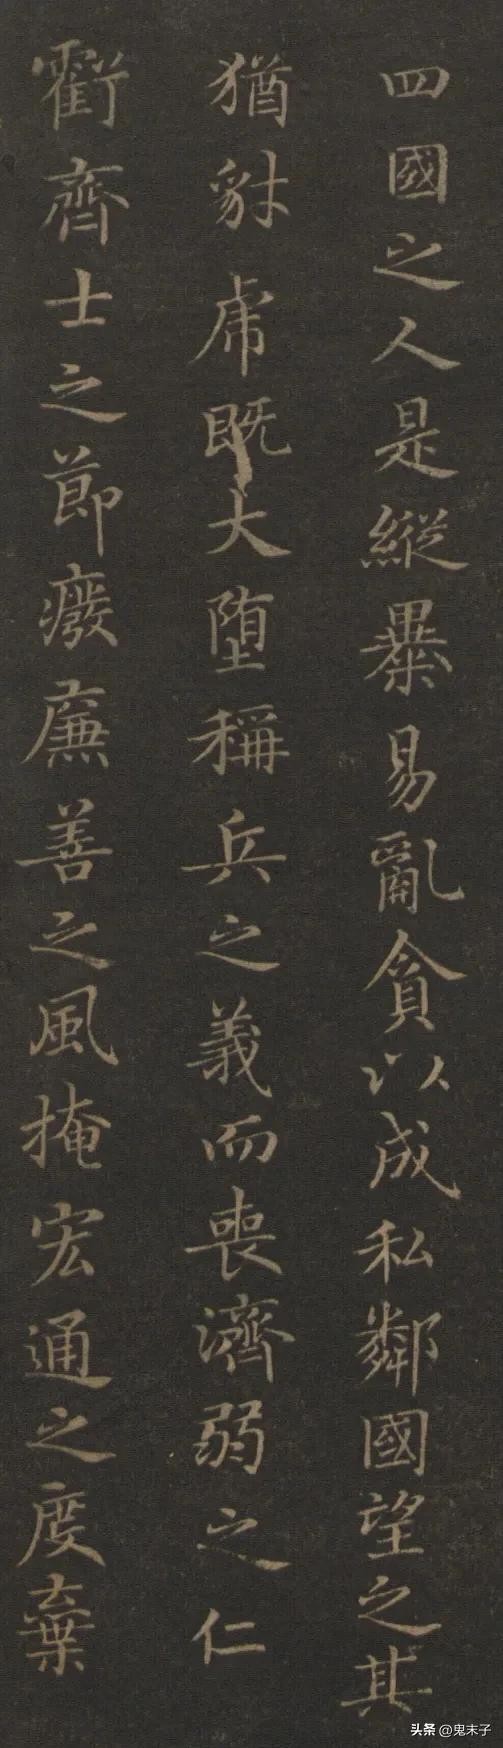 四國之人是縱暴易亂貪以成私鄰國望之其
猶豺虎既大墮稱兵之義而喪濟弱之仁
虧齊士之節廢廉善之風掩宏通之度棄
头条 @鬼末子